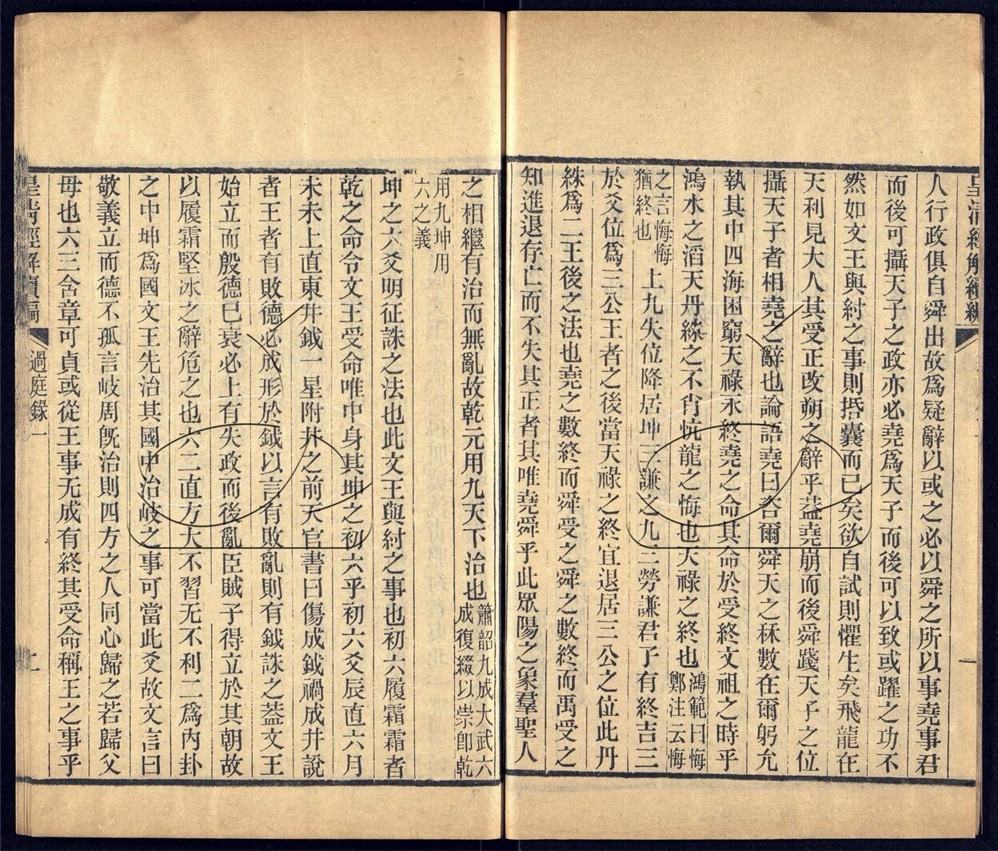 皇清經解續編
人行政俱自舜出故爲疑辭以或之必以舜之所以事堯事君
而後可攝天子之政亦必堯爲天子而後可以致或躍之功不
然如文王與紂之事則括囊而已矣欲自試則懼生矣飛龍在
天利見大人其受正改朔之辭乎葢堯崩而後舜踐天子之位
攝天子者相堯之辭也論語堯曰咨爾舜天之秝數在爾躬允
執其中四海困窮天祿永終堯之命其命於受終文祖之時乎
鴻水之滔天丹絑之不肖忼龍之悔也天祿之終也鴻範曰悔鄭注云悔
之言悔悔猶終也上九失位降居坤三謙之九三勞謙君子有終吉三
於爻位爲三公王者之後當天祿之終宜退居三公之位此丹
絑爲二王後之法也堯之數終而舜受之舜之數終而禹受之
知進退存亡而不失其正者其唯堯舜乎此眾陽之象羣聖人
之相繼有治而無亂故乾元用九天下治也簫韶九成大武六成復綴以崇卽乾
用九坤用六之義
坤之六爻明征誅之法也此文王與紂之事也初六履霜霜者
乾之命令文王受命唯中身其坤之初六乎初六爻辰直六月
未未上直東井鉞一星附井之前天官書曰傷成鉞禍成井說
者王者有敗德必成形於鉞以言有敗亂則有鉞誅之葢文王
始立而殷德已衰必上有失政而後亂臣賊子得立於其朝故
以履霜堅冰之辭危之也六二直方大不習无不利二爲內卦
之中坤爲國文王先治其國中治岐之事可當此爻故文言曰
敬義立而德不孤言岐周旣治則四方之人同心歸之若歸父
母也六三含章可貞或從王事无成有終其受命稱王之事乎
皇清經解續編
過庭錄一